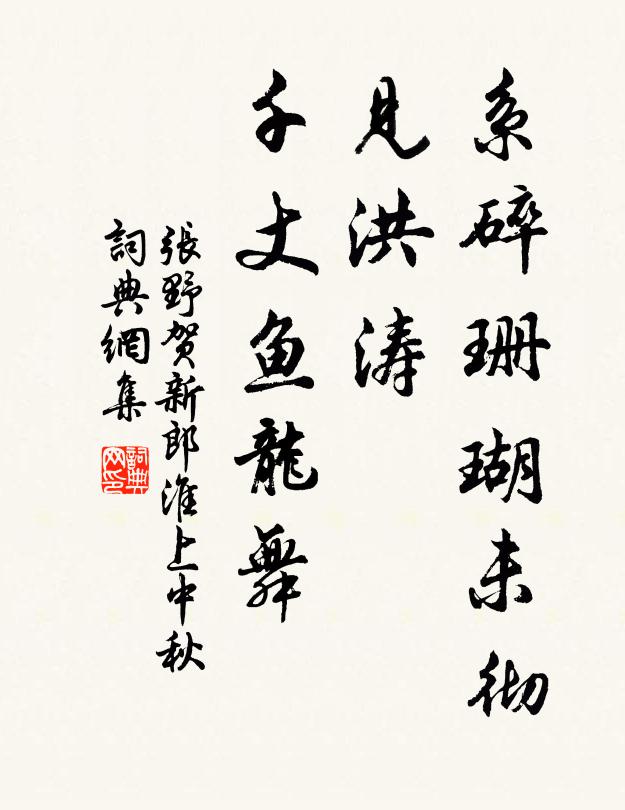 系碎珊瑚未彻
见洪涛
千丈鱼龍舞
張野贺新郎淮上中秋
詞典網集
詞典网印